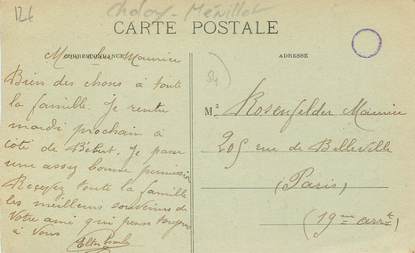 121
Choloy - Ménillot
CARTE POSTALE
CORRESPONDANCE
ADRESSE
Mon cher Maurice
Bien des choses à toute
la famille. Je rentre
mardi prochain à
côté de Je passe
une assez bonne permission
Recevez toute la famille
les meilleurs souvenirs de
Votre ami qui pense toujours
à Vous
Mr Rosenfelder Maurice
205 rue de Belleville
(Paris)
(19me arrt)